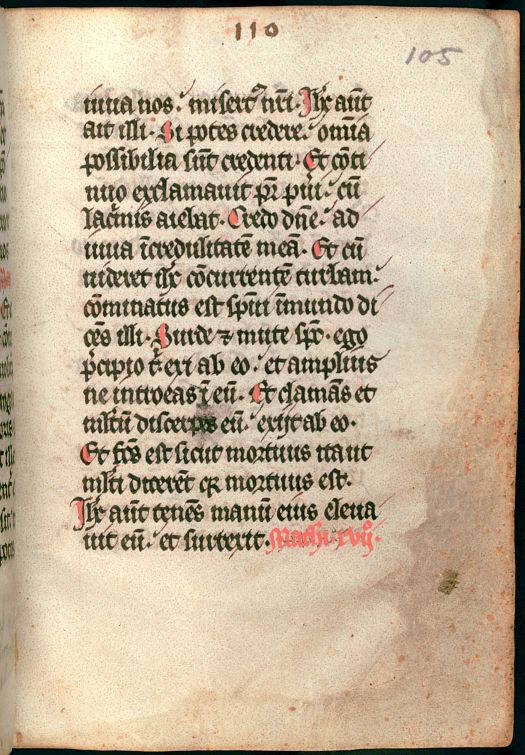 110
105
iuua nos. misert9 nr̄i. Ihc̄ aūt
ait illi. Si potes credere. om̄ia
possibilia sūt credenti. Et cōti
nuo exclamauit pr̄ pu̅i. cū
lacrimis aiebat. Credo dn̄e. ad
iuua īcredulitatē meā. Et cū
uideret ihc̄ cōcurrentē turbam.
cōminatus est sp̄ui īmundo di
cēs illi. Surde ⁊ mute sp̄c. ego
p̄cipio t̄. exi ab eo. et amplius
ne introeas ī eū. Et clamās et
ml̄tū discerpēs eū. exijt ab eo.
Et fc̄s est sicut mortuus ita ut
ml̄ti dicerēt qr̄ mortuus est.
Ihc̄ aūt tenēs manū eius eleua
uit eū. et surrexit. Mathi. xvij.